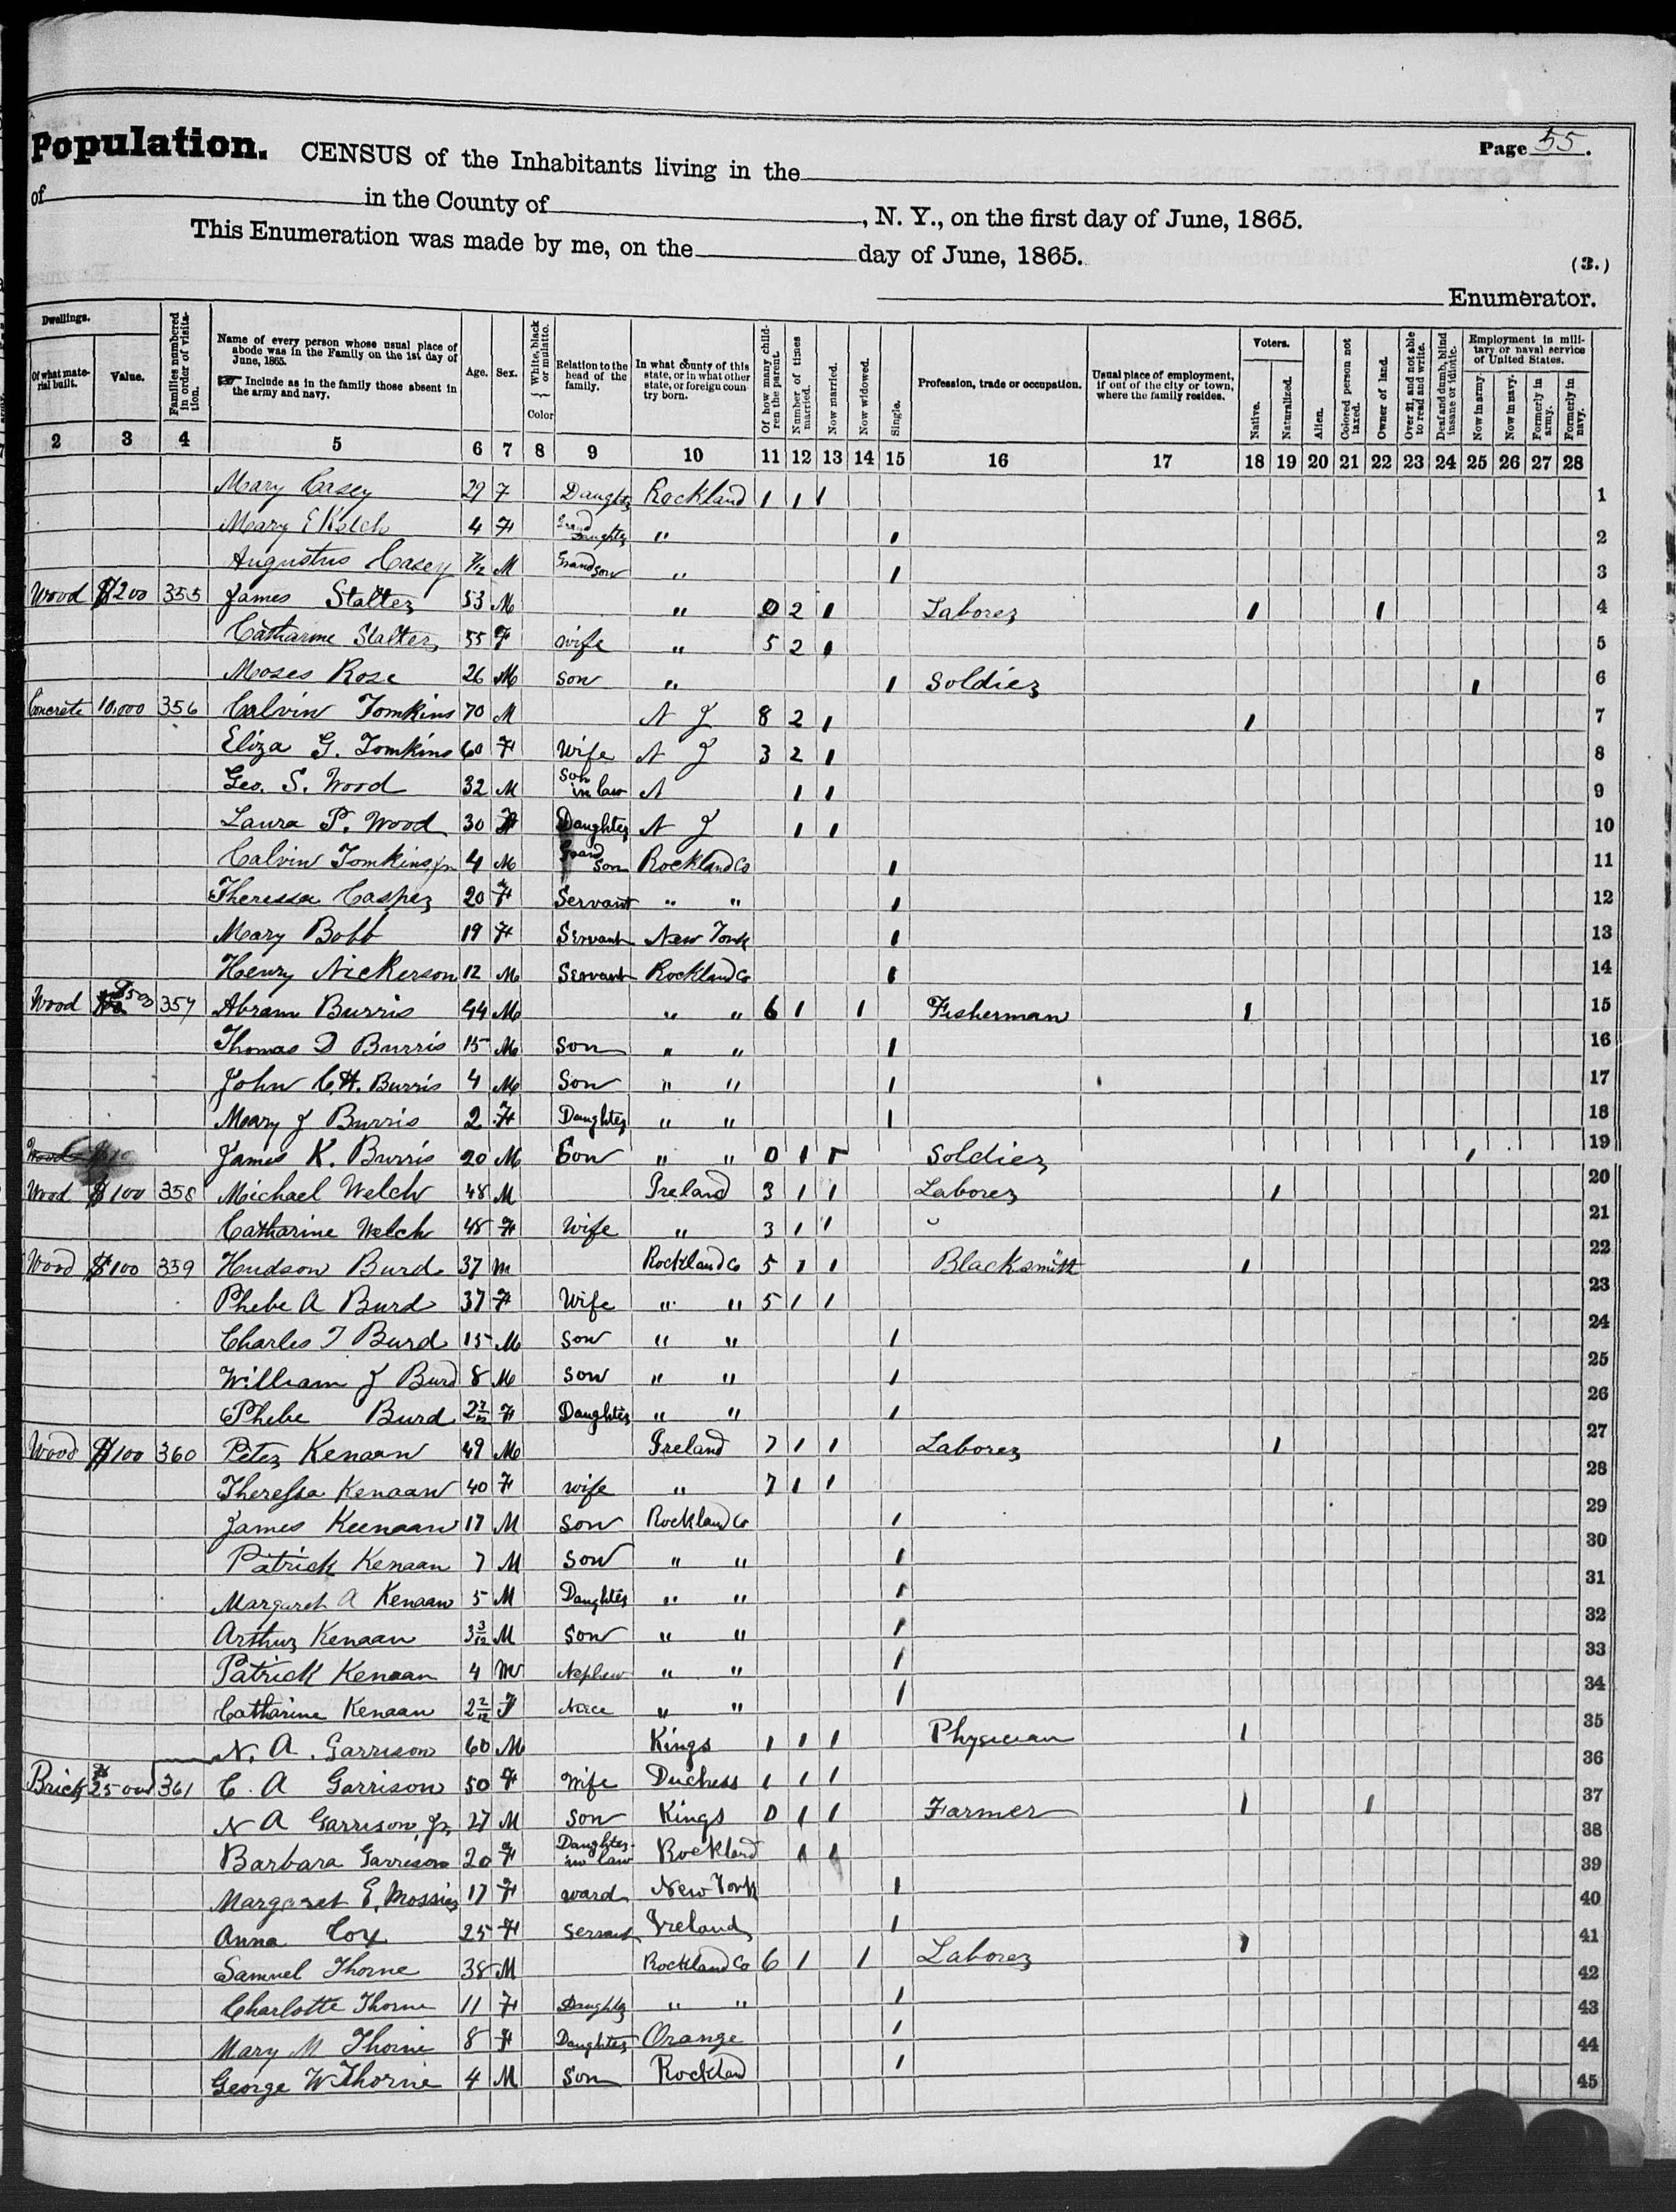 Population. CENSUS of the Inhabitants living in the
Page 55.
of in the County of , N. Y., on the first day of June, 1865.
This Enumeration was made by me, on the day of June, 1865.
(3.)
Enumerator.
Dwellings. Of what material built. Value. Families numbered in order of visitation. Name of every person whose usual place of abode was in the Family on the 1st day of June, 1865. ☞ Include as in the family those absent in the army and navy. Age. Sex. White, black or mulatto. Color Relation to the head of the family. In what county of this state, or in what other state, or foreign country born. Of how many children the parent. Number of times married. Now married. Now widowed. Single. Profession, trade or occupation. Usual place of employment, if out of the city or town, where the family resides. Voters. Native. Naturalized. Alien. Colored person not taxed. Owner of land. Over 21, and not able to read and write. Deaf and dumb, blind insane or idiotic. Employment in military or naval service of United States. Now in army. Now in navy. Formerly in army. Formerly in navy.
2 3 4 5 6 7 8 9 10 11 12 13 14 15 16 17 18 19 20 21 22 23 24 25 26 27 28
Mary Casey 29 F Daughter Rockland 1 1 1 1
Mary E Kelch 4 F Grand Daughter " 1 2
Augustus Casey 7/12 M Grandson " 1 3
Wood $200 355 James Stalter 53 M " 0 2 1 Laborer 1 1 4
Catharine Stalter 55 F wife " 5 2 1 5
Moses Rose 26 M son " 1 Soldier 1 6
Concrete 10.000 356 Calvin Tomkins 70 M N J 8 2 1 1 7
Eliza G. Tomkins 60 F Wife N J 3 2 1 8
Geo. S. Wood 32 M Son in law N 1 1 9
Laura P. Wood 30 F Daughter N J 1 1 10
Calvin Tomkins Jr 4 M Grand Son Rockland Co 1 11
Theressa Casper 20 F Servant " " 1 12
Mary Bobb 19 F Servant New York 1 13
Henry Nickerson 12 M Servant Rockland Co 1 14
Wood 357 Abram Burris 44 M " " 6 1 1 Fisherman 1 15
Thomas D Burris 15 M Son " " 1 16
John C.H. Burris 4 M Son " " 1 17
Mary J Burris 2 F Daughter " " 1 18
Wood James K. Burris 20 M Son " " 0 1 1 Soldier 1 19
Wood $100 358 Michael Welch 48 M Ireland 3 1 1 Laborer 1 20
Catharine Welch 48 F Wife " 3 1 1 21
Wood $100 359 Hudson Burd 37 M Rockland Co 5 1 1 Blacksmith 1 22
Phebe A Burd 37 F Wife " " 5 1 1 23
Charles T Burd 15 M Son " " 1 24
William J Burd 8 M Son " " 1 25
Phebe Burd 2 7/12 F Daughter " " 1 26
Wood $100 360 Peter Kenaan 49 M Ireland 7 1 1 Laborer 1 27
Theressa Kenaan 40 F wife " 7 1 1 28
James Keenaan 17 M Son Rockland Co 1 29
Patrick Kenaan 7 M Son " " 1 30
Margaret A Kenaan 5 M Daughter " " 1 31
Arthur Kenaan 3 3/12 M Son " " 1 32
Patrick Kenaan 4 M Nephew " " 1 33
Catharine Kenaan 2 2/12 F Niece " " 1 34
N. A. Garrison 60 M Kings 1 1 1 Physician 1 35
Brick 361 C. A Garrison 50 F Wife Duchess 1 1 1 36
N A Garrison, Jr 27 M Son Kings 0 1 1 Farmer 1 1 37
Barbara Garrison 20 F Daughter in law Rockland 1 1 38
Margaret E. 17 F ward New York 1 39
Anna Cox 25 F Servant Ireland 1 40
Samuel Thorne 38 M Rockland Co 6 1 1 Laborer 1 41
Charlotte Thorne 11 F Daughter " " 1 42
Mary M Thorne 8 F Daughter Orange 1 43
George W Thorne 4 M Son Rockland 1 44
45